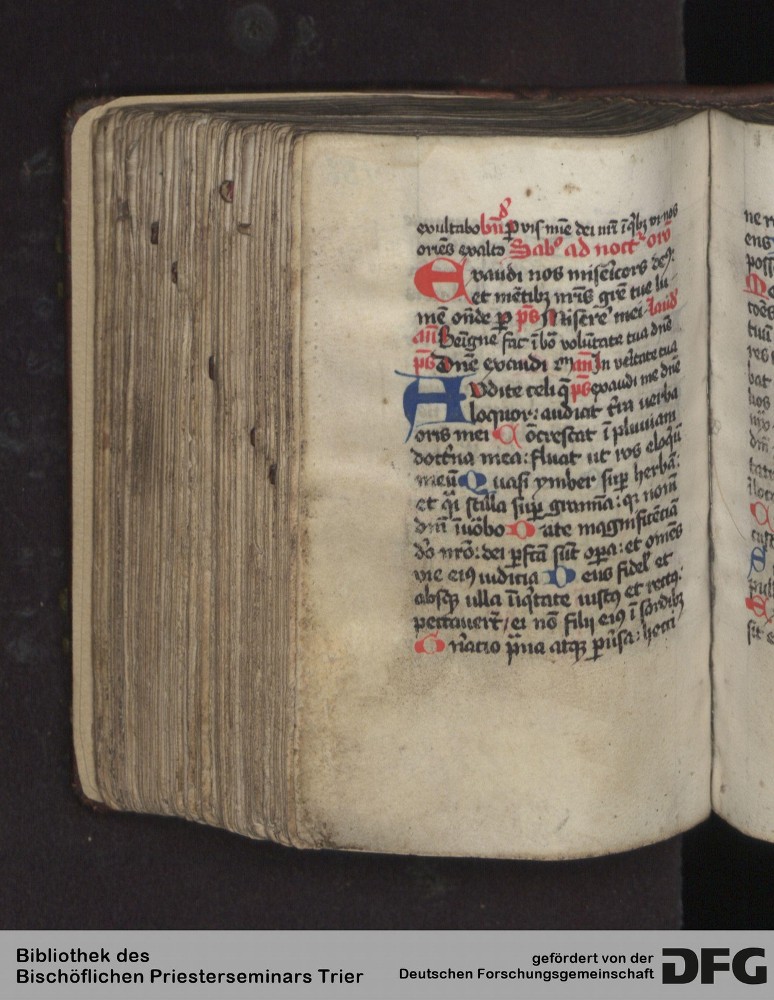 exultabo bn̄ P vis mīe dei nr̄i ī qibꝫ
oriēs exalto Sabᵒ ad noct᷑ orō
Exaudi nos misēicors deꝰ:
et mētibꝫ nr̄is grē tue lu
mē ōnde p ps̄ Misere᷑ mei laud᷑
an̄ Beīgne fac ī bō volūtate tua dn̄e
ps̄ Dn̄e exaudi an̄ In vēitate tua
Audite celi q̄ ps̄ exaudi me dn̄e
loquor: audiat t̄ra verba
oris mei Cōcrescat ī pluviam
doct᷑na mea: fluat ut ros eloqū
meū Quasi ymber sup herbā:
et qi stilla sup gramīa: qꝛ nom̄
dn̄i īvōbo Date magnificēciā
dō nrō: dei pfc̄a sūt opa: et om̄es
vie eiꝰ iudicia Deus fidel᷑ et
absqꝫ ulla īiqitate iustꝰ et rectꝰ:
peccaver̄t / ei nō filii eiꝰ ī sordibꝫ
Gn̄acio p̄va atqꝫ p̄vsa: hecci
ne r
ens
poss
tuū
res
vat
hos
dm̄
sit e
Bibliothek des
Bischöflichen Priesterseminars Trier
gefördert von der
Deutschen Forschungsgemeinschaft
DFG